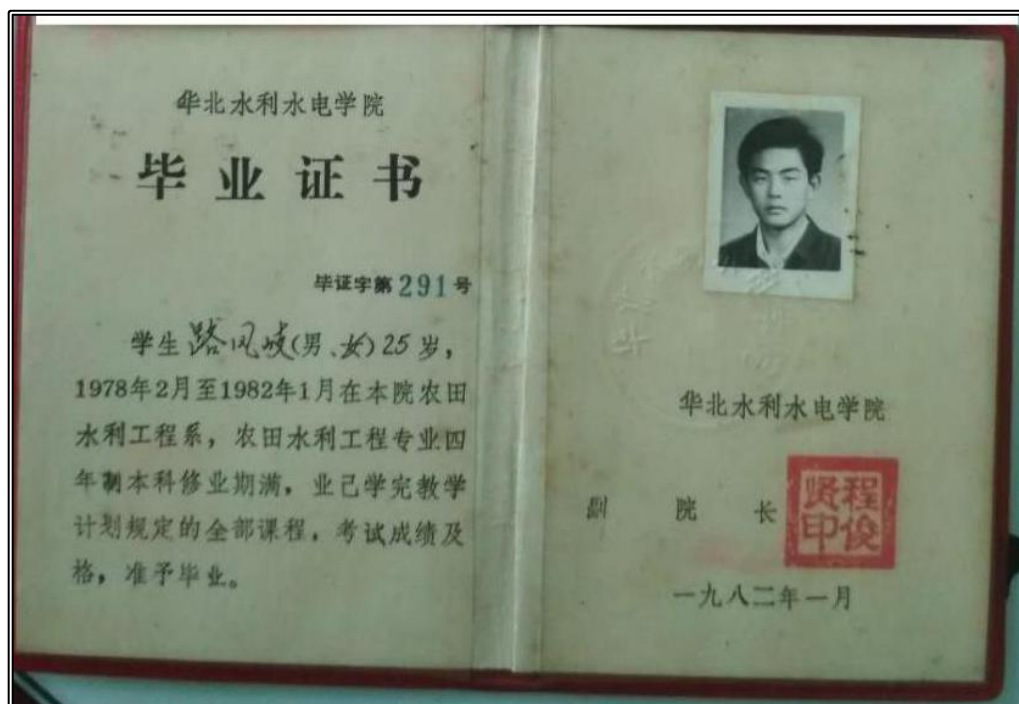 华北水利水电学院
毕业证书
毕证字第291号
学生路风岐(男、女)25岁，
1978年2月至1982年1月在本院农田
水利工程系，农田水利工程专业四
年制本科修业期满，业已学完教学
计划规定的全部课程，考试成绩及
格，准予毕业。
华北水利水电学院
副 院 长
程俊
贤印
一九八二年一月